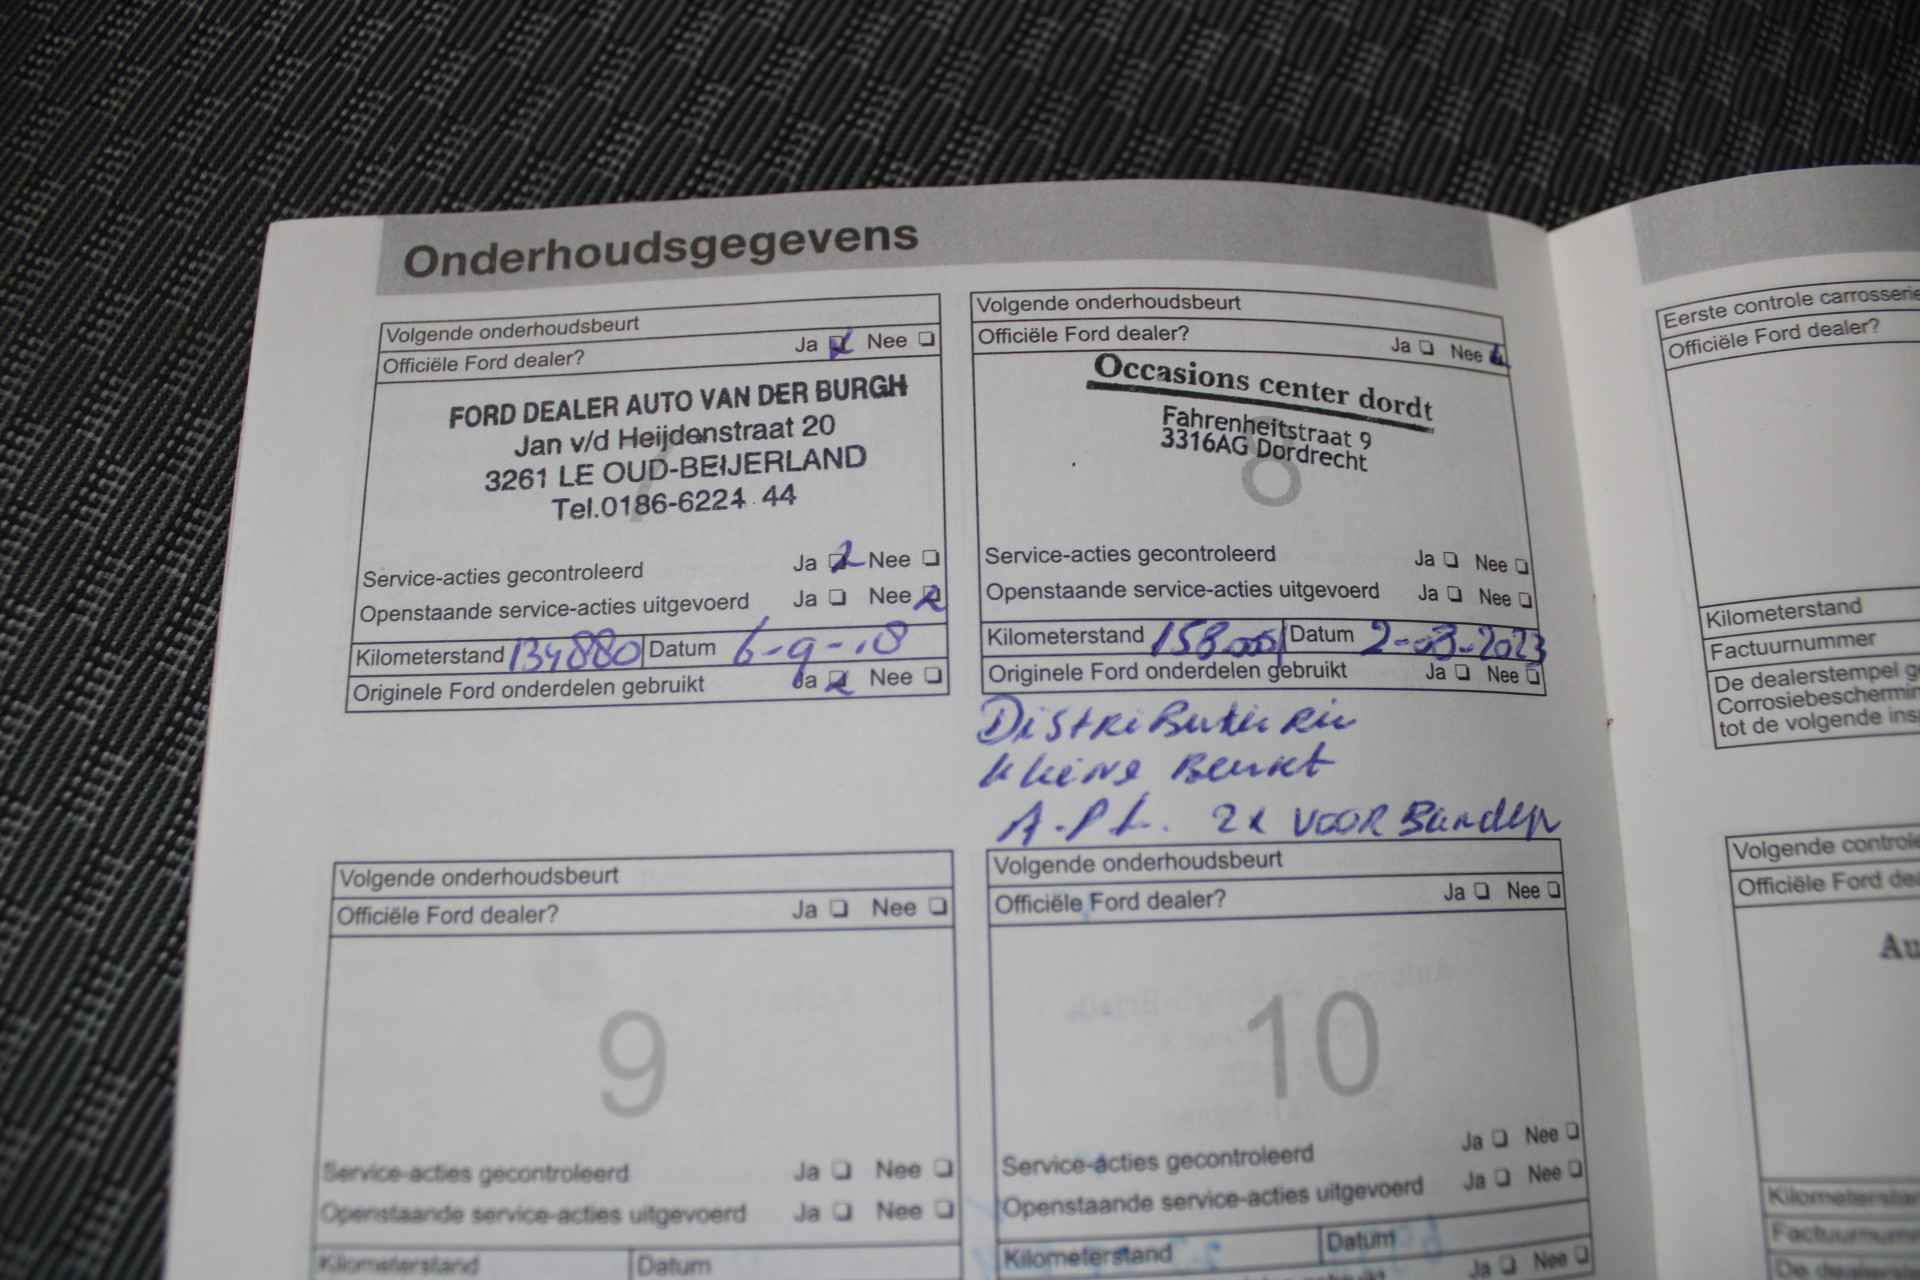 Onderhoudsgegevens
Volgende onderhoudsbeurt
Officiële Ford dealer? Ja Nee
FORD DEALER AUTO VAN DER BURGH
Jan v/d Heijdenstraat 20
3261 LE OUD-BEIJERLAND
Tel.0186-6221 44
7
Service-acties gecontroleerd Ja Nee
Openstaande service-acties uitgevoerd Ja Nee
Kilometerstand 134880 Datum 6-9-18
Originele Ford onderdelen gebruikt Ja Nee
Volgende onderhoudsbeurt
Officiële Ford dealer? Ja Nee
Occasions center dordt
Fahrenheitstraat 9
3316AG Dordrecht
8
Service-acties gecontroleerd Ja Nee
Openstaande service-acties uitgevoerd Ja Nee
Kilometerstand 158000 Datum 2-03-2023
Originele Ford onderdelen gebruikt Ja Nee
Distributie Riem
kleine Beurt
A.P.K. 2x VOOR Banden
Volgende onderhoudsbeurt
Officiële Ford dealer? Ja Nee
9
Service-acties gecontroleerd Ja Nee
Openstaande service-acties uitgevoerd Ja Nee
Kilometerstand Datum
Volgende onderhoudsbeurt
Officiële Ford dealer? Ja Nee
10
Service-acties gecontroleerd Ja Nee
Openstaande service-acties uitgevoerd Ja Nee
Kilometerstand Datum
Ja Nee
Eerste controle carrosserie
Officiële Ford dealer?
Kilometerstand
Factuurnummer
De dealerstempel
Corrosiebeschermin
tot de volgende ins
Volgende controle
Officiële Ford dea
Au
Kilometerstan
Factuurnumm
De dealerste